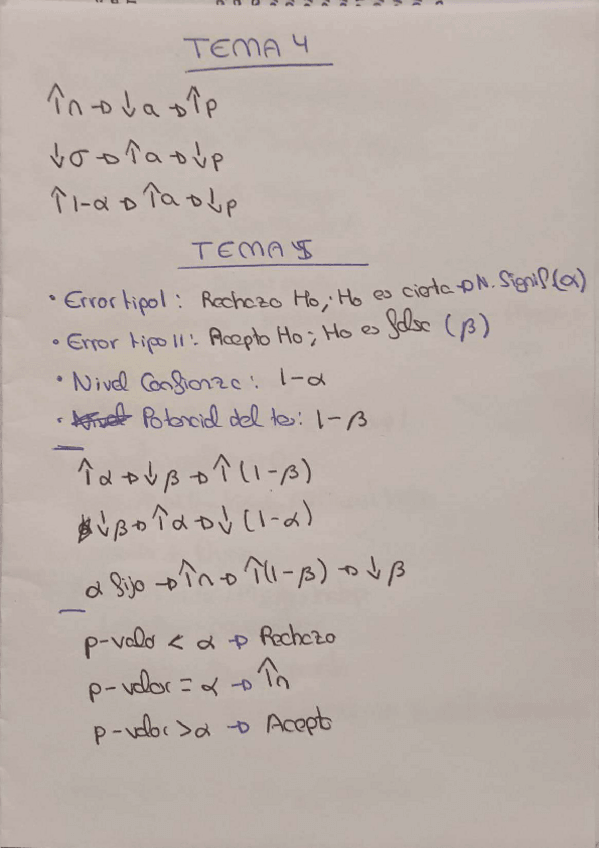 TEMA 4
↑n → ↓a → ↑p
↓σ → ↑a → ↓p
↑1-α → ↑a → ↓p
TEMA 5
• Error tipo I: Rechazo Ho; Ho es cierta → N. Signif (α)
• Error tipo II: Acepto Ho; Ho es falsa (β)
• Nivel Confianza: 1-α
• Potencial del te: 1-β
↑α → ↓β → ↑(1-β)
↓β → ↑α → ↓(1-α)
α fijo → ↑n → ↑(1-β) → ↓β
p-valor < α → Rechazo
p-valor = α → ↑n
p-valor > α → Acepto